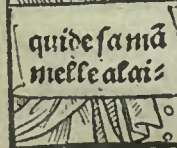 quide sa mã
melle alai⸗